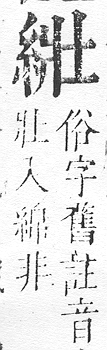 俗字舊註音
壯入綿非